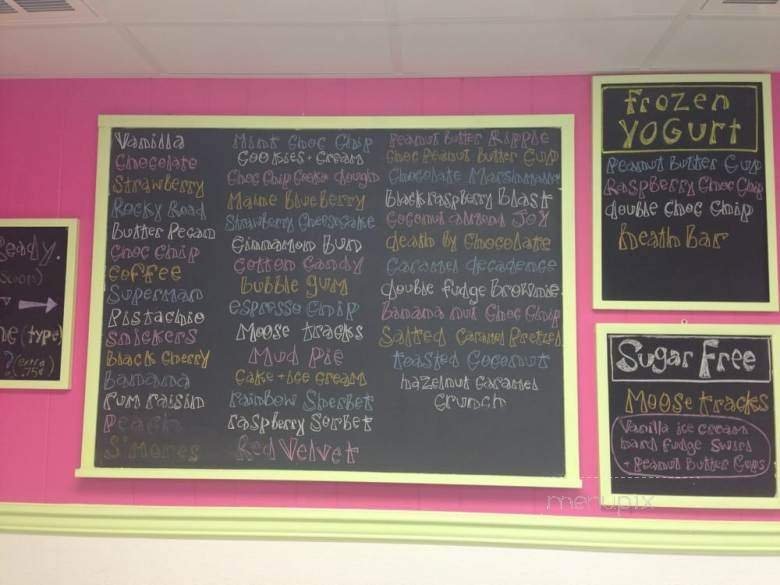 Ready.
ne (type)
.75¢
Vanilla
Chocolate
Strawberry
Rocky Road
Butter Pecan
Choc Chip
Coffee
Superman
Pistachio
Snickers
Black Cherry
Banana
Rum Raisin
Peach
S'mores
Mint Choc Chip
Cookies + Cream
Choc Chip Cookie dough
Maine Blueberry
Strawberry Cheesecake
Cinnamon Bun
Cotton Candy
Bubble gum
espresso Chip
Moose tracks
Mud Pie
Cake + ice cream
Rainbow Sherbet
Raspberry Sorbet
Red Velvet
Peanut Butter Ripple
Choc Peanut butter Cup
Chocolate Marshmallow
Black raspberry Blast
Coconut almond Joy
death by Chocolate
Caramel decadence
double fudge Brownie
Banana nut Choc Chip
Salted Caramel Pretzel
toasted Coconut
hazelnut Caramel
Crunch
Frozen
YOGurt
Peanut Butter Cup
Raspberry Choc Chip
double Choc Chip
heath Bar
Sugar Free
Moose tracks
Vanilla ice cream
hard fudge Swirl
+ Peanut Butter Cups
menupix